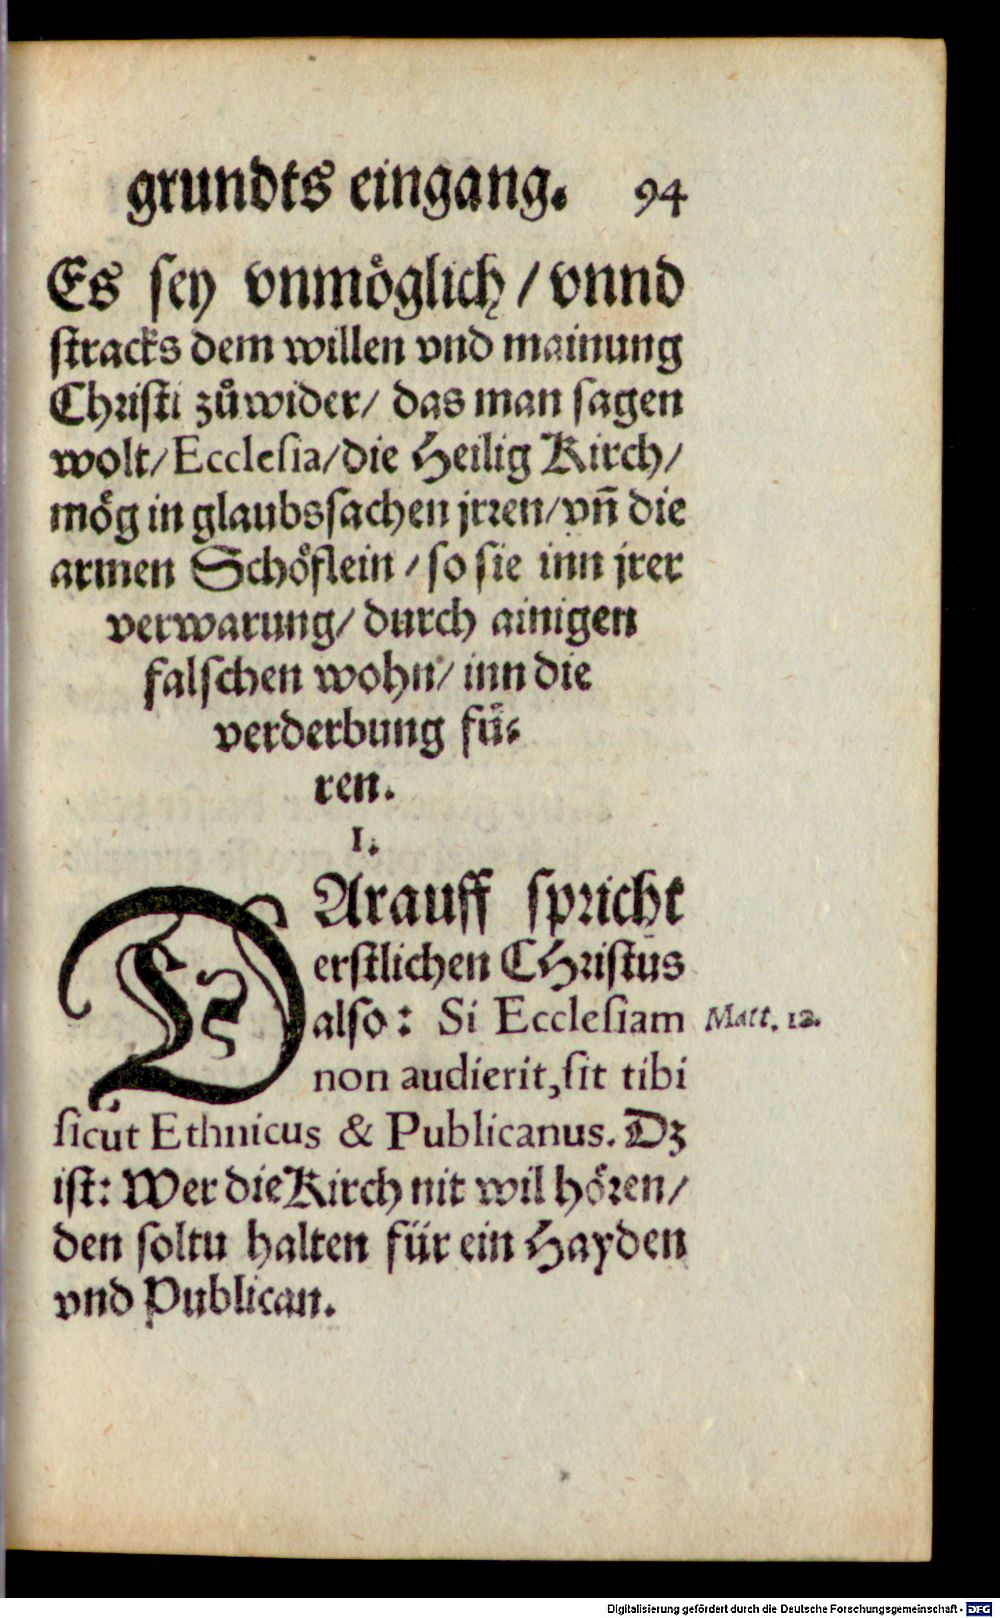 grundts eingang. 94
Es sey vnmöglich / vnnd
stracks dem willen vnd mainung
Christi zůwider / das man sagen
wolt / Ecclesia / die Heilig Kirch /
mög in glaubssachen jrren / vñ die
armen Schöflein / so sie inn jrer
verwarung / durch ainigen
falschen wohn / inn die
verderbung fü-
ren.
I.
DArauff spricht
erstlichen CHristus
also: Si Ecclesiam Matt. 12.
non audierit, sit tibi
sicut Ethnicus & Publicanus. Dz
ist: Wer die Kirch nit wil hören /
den soltu halten für ein Hayden
vnd Publican.
Digitalisierung gefördert durch die Deutsche Forschungsgemeinschaft - DFG